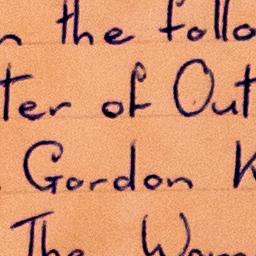 n the follo
ter of Out
Gordon K
The Wom